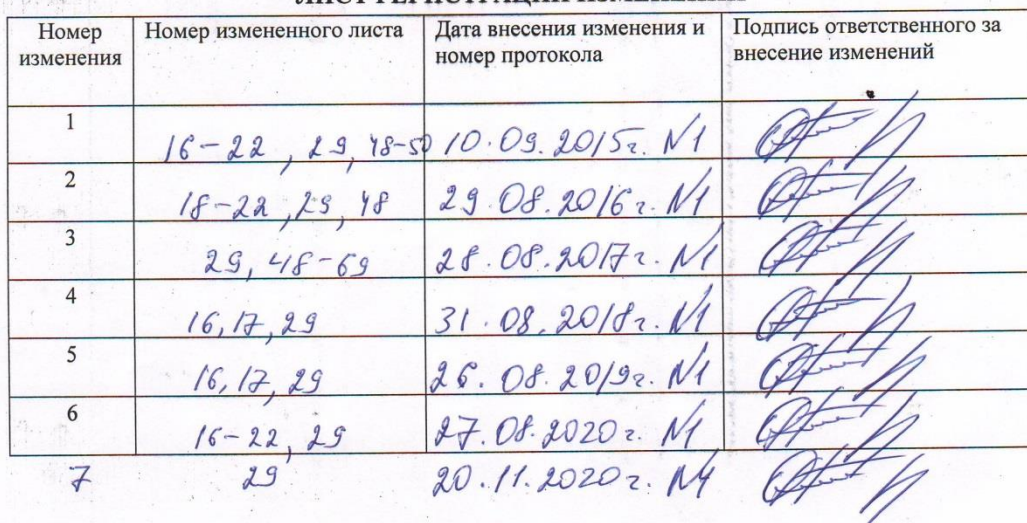 ЛИСТ РЕГИСТРАЦИИ ИЗМЕНЕНИЙ
Номер изменения Номер измененного листа Дата внесения изменения и номер протокола Подпись ответственного за внесение изменений
1 16-22, 29, 48-50 10.09.2015г. №1
2 18-22, 29, 48 29.08.2016г. №1
3 29, 48-69 28.08.2017г. №1
4 16, 17, 29 31.08.2018г. №1
5 16, 17, 29 26.08.2019г. №1
6 16-22, 29 27.08.2020г. №1
7 29 20.11.2020г. №4